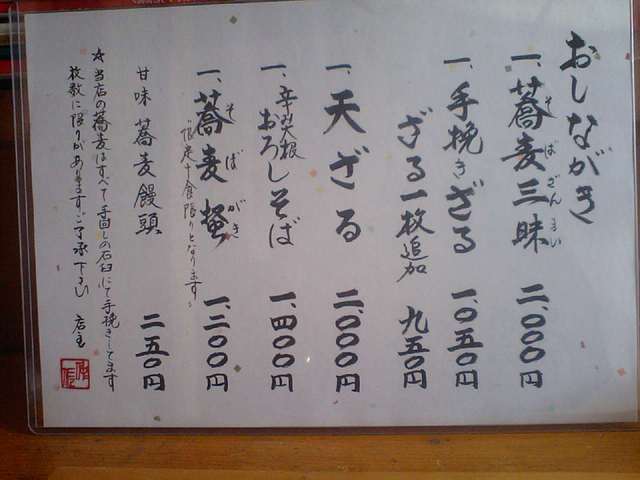 おしながき
一、蕎麦三昧 二、〇〇〇円
そばざんまい
一、手挽きざる 一、〇五〇円
ざる一枚追加 九五〇円
一、天ざる 二、〇〇〇円
一、辛み大根おろしそば 一、四〇〇円
一、蕎麦掻 一、二〇〇円
そばがき
限定十食限りとなります。
甘味 蕎麦饅頭 二五〇円
☆当店の蕎麦はすべて手回しの石臼にて手挽きしてます
枚数に限りがあります。ご了承下さい 店主